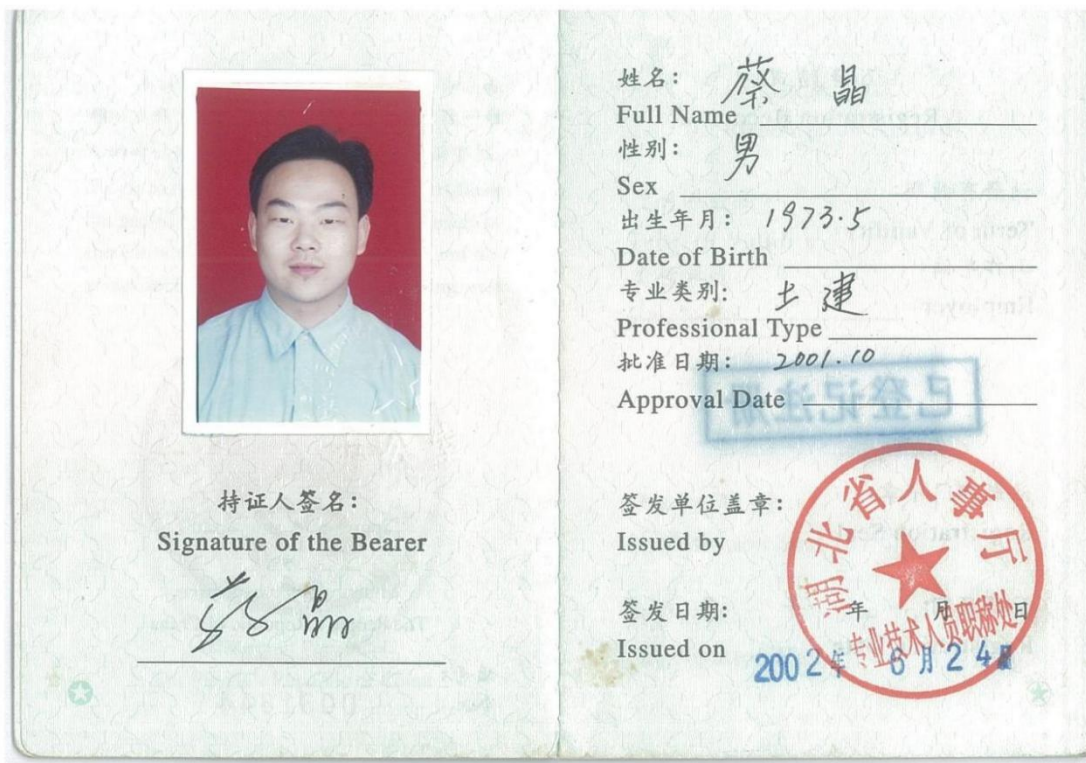 持证人签名:
Signature of the Bearer
蔡晶
姓名: 蔡 晶
Full Name
性别: 男
Sex
出生年月: 1973.5
Date of Birth
专业类别: 土建
Professional Type
批准日期: 2001.10
Approval Date
已登记注册
签发单位盖章:
Issued by
湖北省人事厅
专业技术人员职称处
签发日期: 年 月 日
Issued on
2002年 6月24日